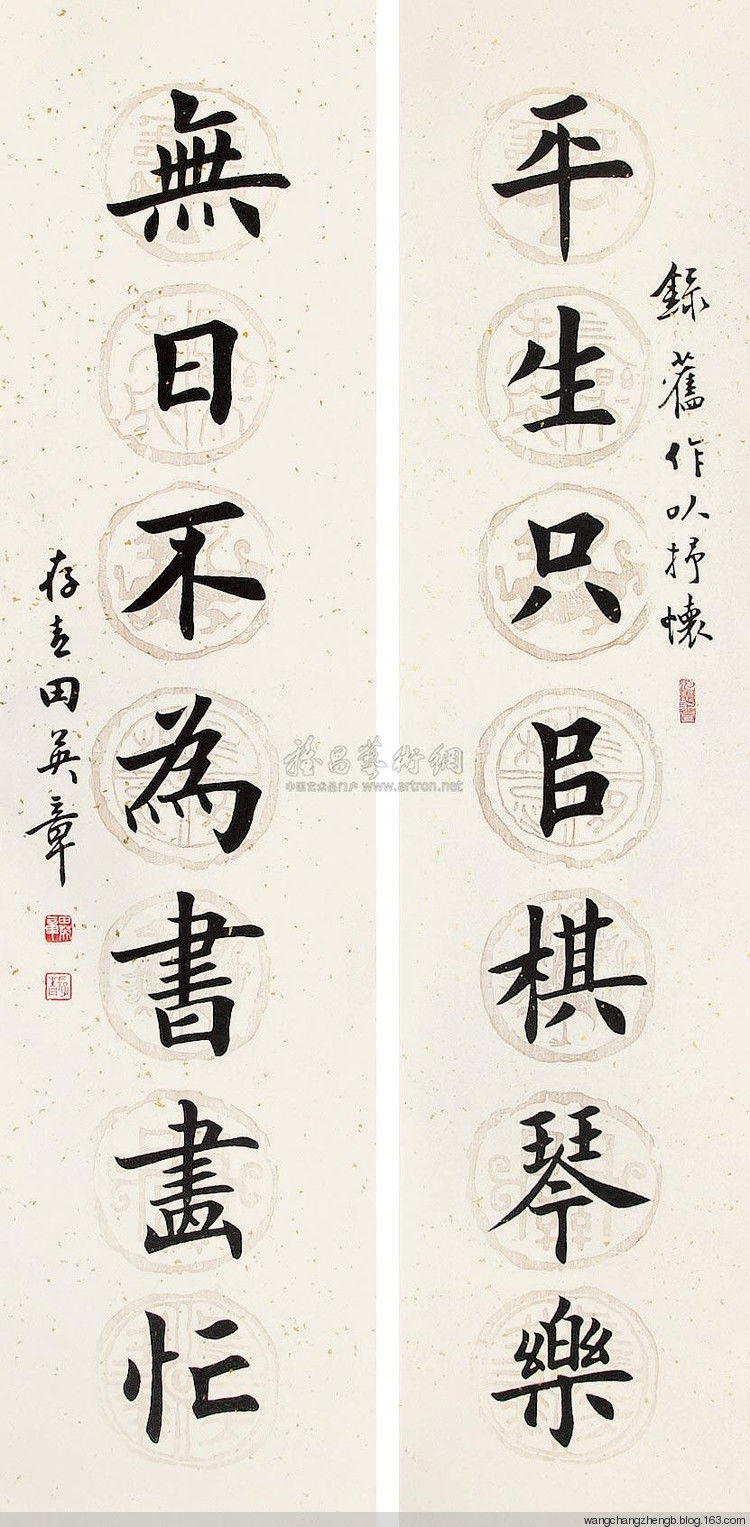 錄舊作以抒懷
平生只㠯棋琴樂
無日不為書畫忙
存青田英章
雅昌藝術網
中国艺术品门户 www.artron.net
wangchangzhengb.blog.163.com